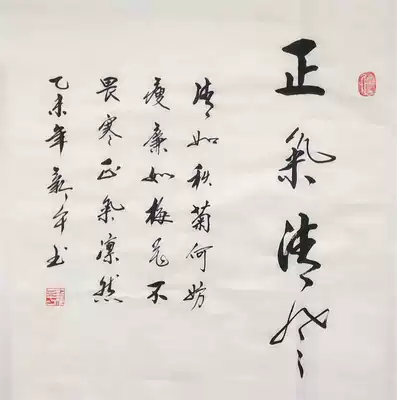 正氣清风
清如秋菊何妨
瘦廉如梅花不
畏寒正氣凛然
乙未年 书